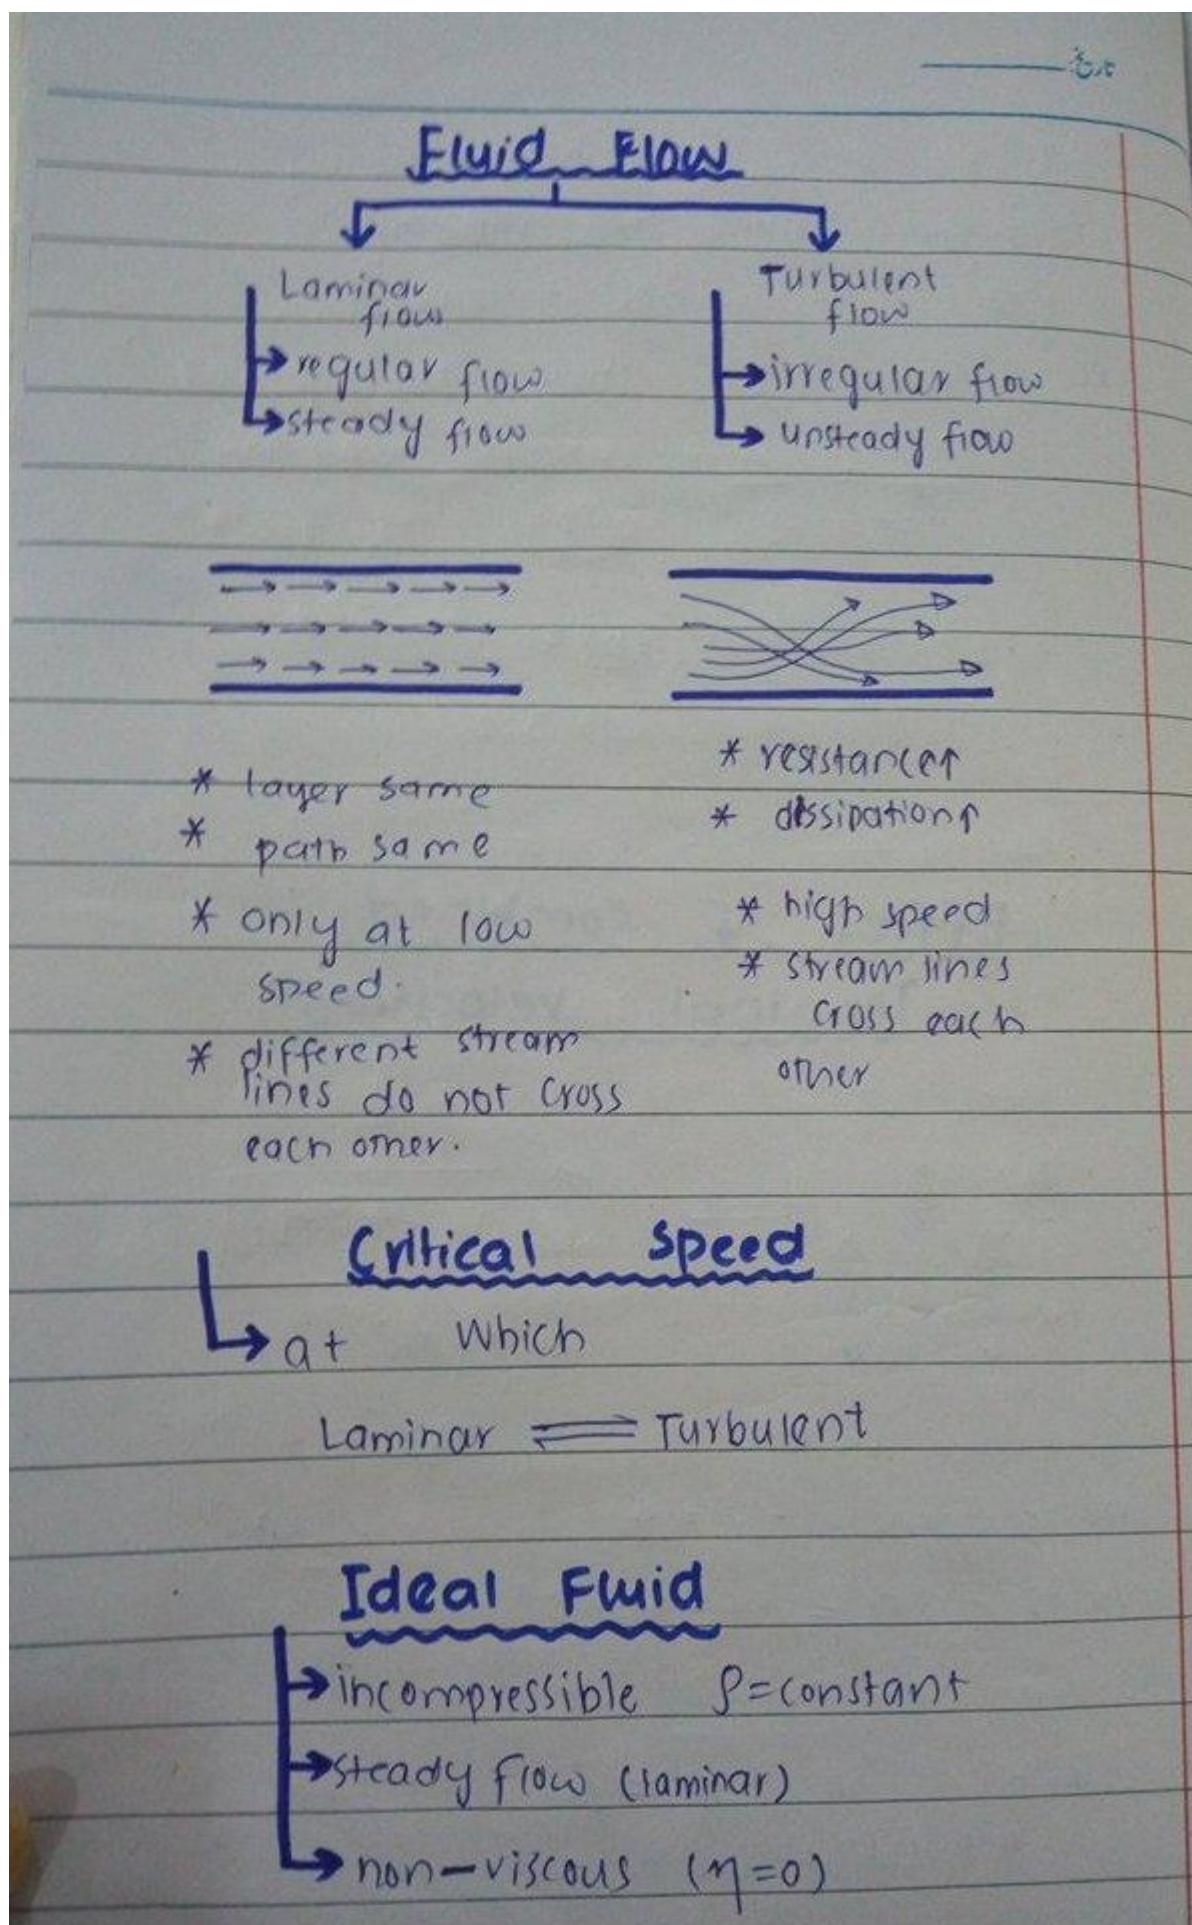 تاریخ
Fluid Flow
Laminar
flow
regular flow
steady flow
Turbulent
flow
irregular flow
unsteady flow
* layer same
* path same
* only at low
speed.
* different stream
lines do not cross
each other.
* resistance↑
* dissipation↑
* high speed
* stream lines
cross each
other
Critical Speed
at which
Laminar ⇌ Turbulent
Ideal Fluid
incompressible ρ=constant
steady flow (laminar)
non-viscous (η=0)